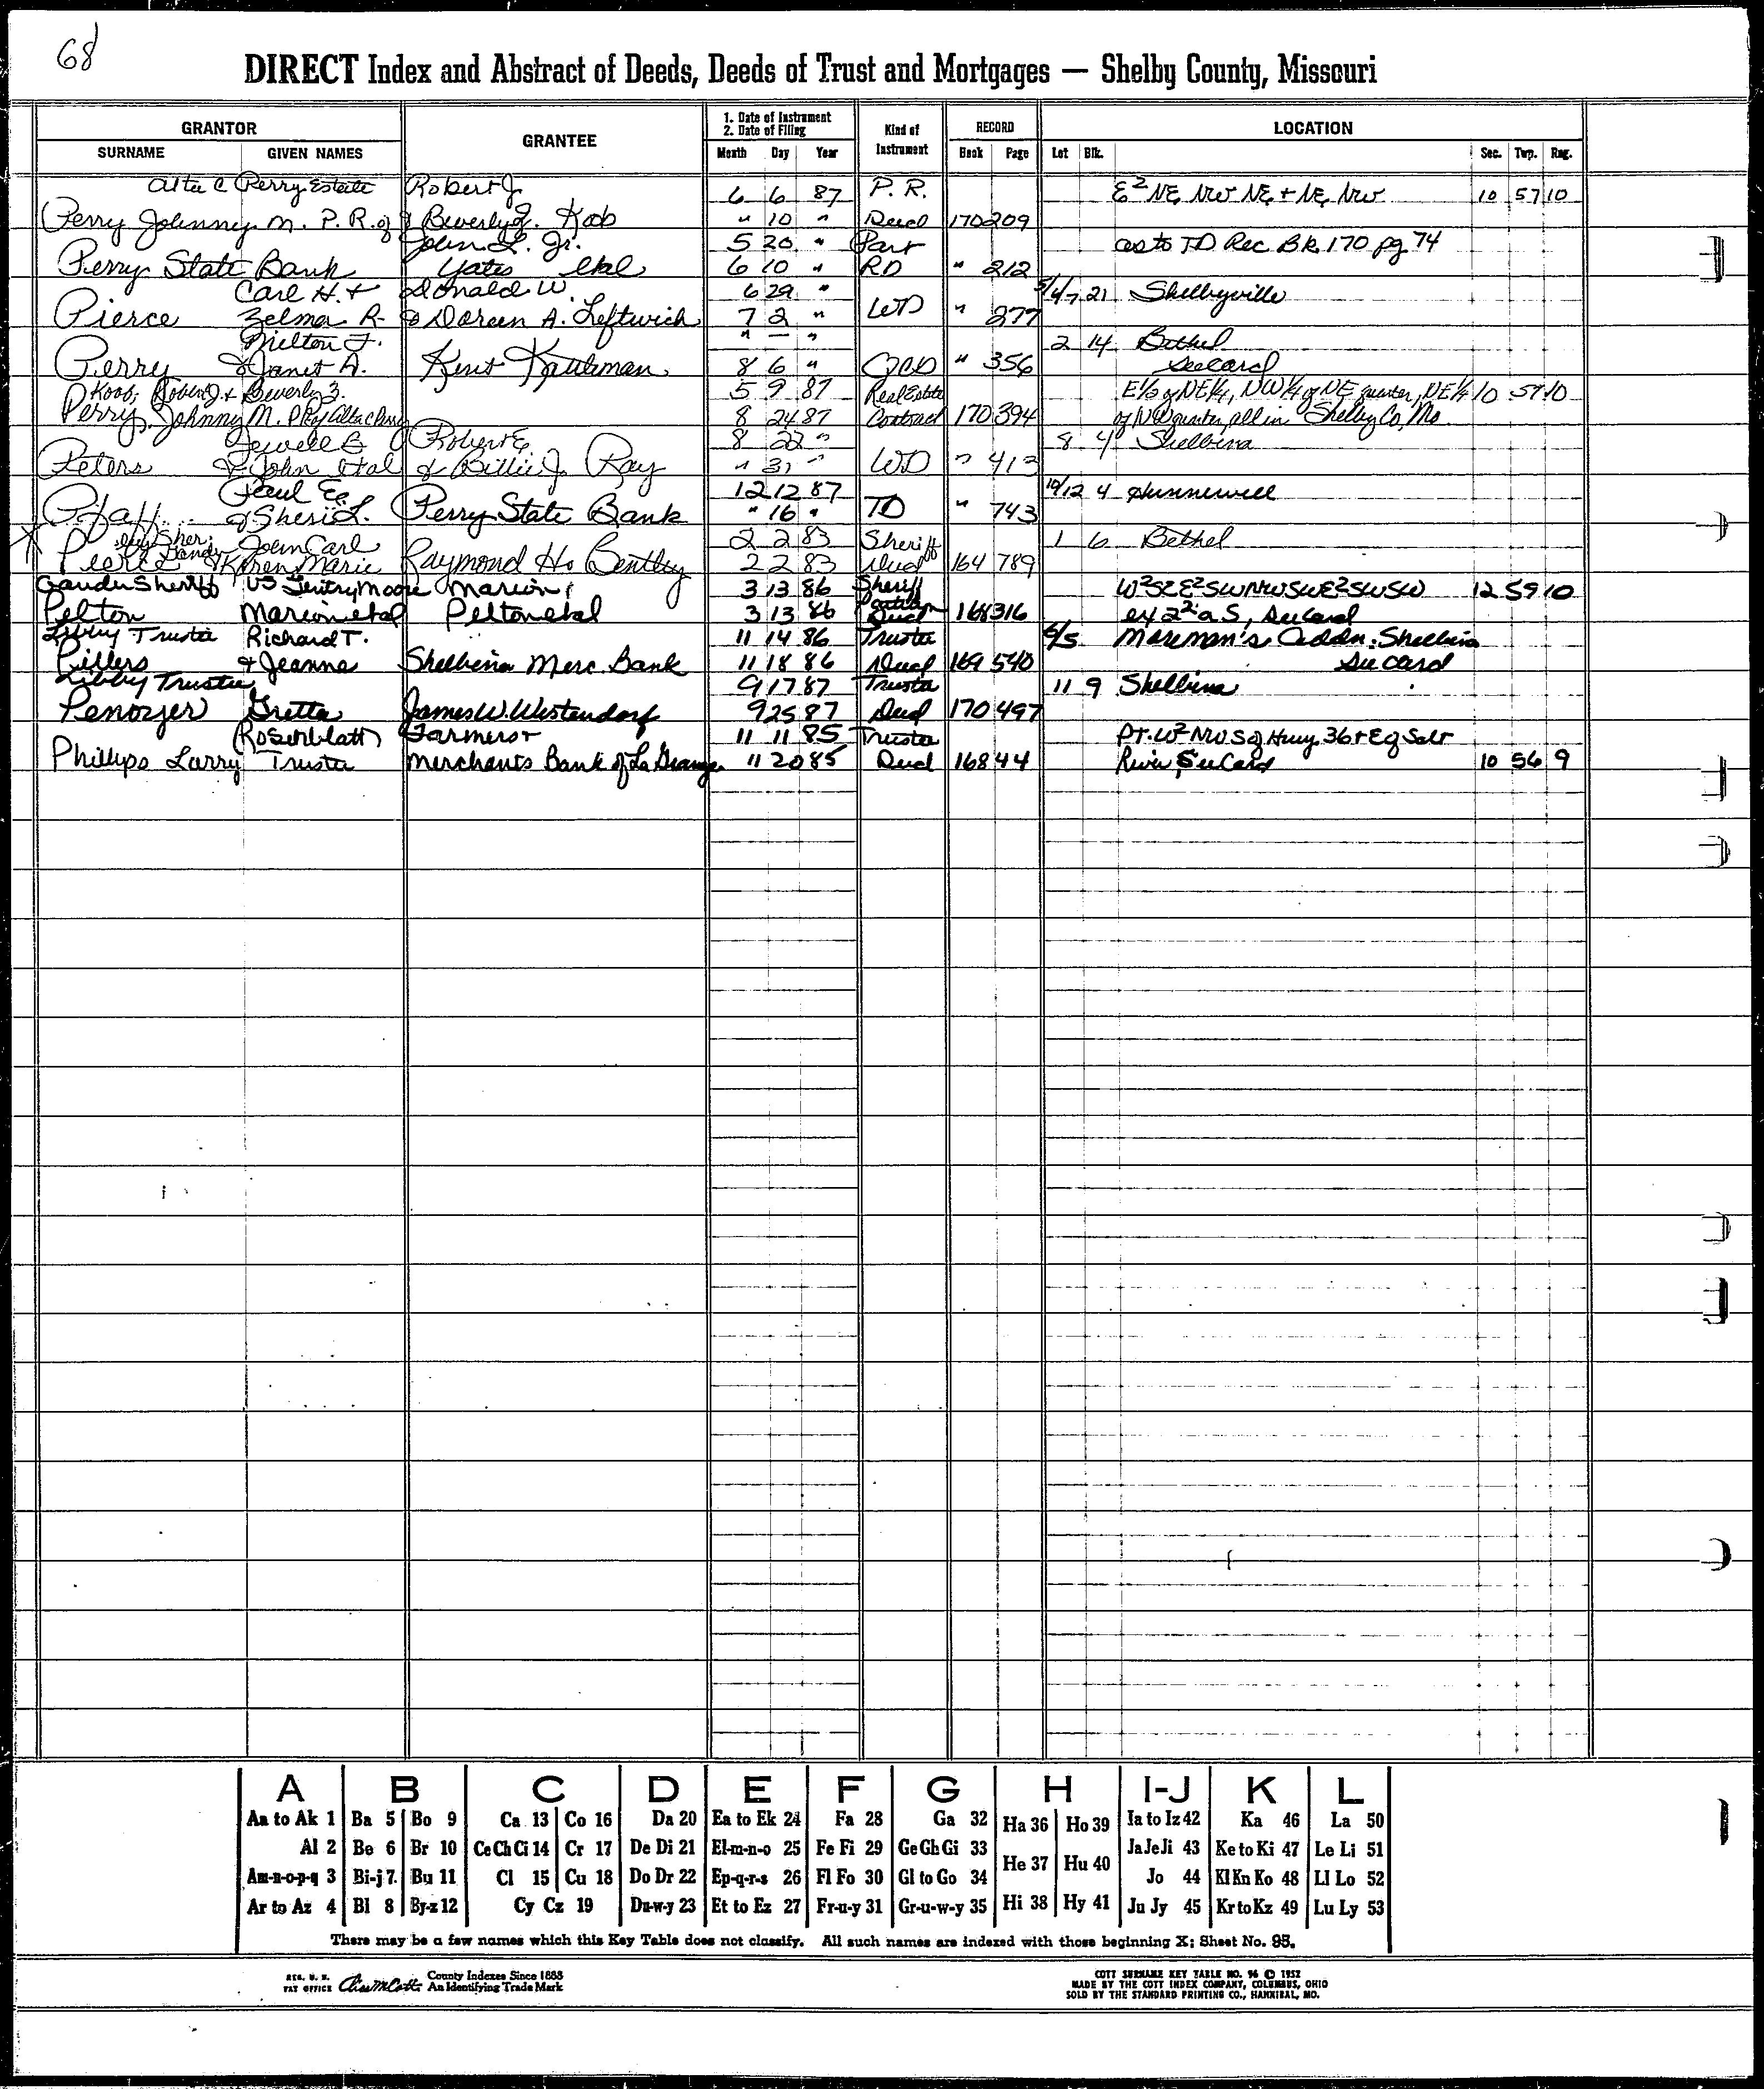 68
DIRECT Index and Abstract of Deeds, Deeds of Trust and Mortgages — Shelby County, Missouri
GRANTOR GRANTEE 1. Date of Instrument 2. Date of Filing Kind of Instrument RECORD LOCATION
SURNAME GIVEN NAMES Month Day Year Book Page Lot Blk. Sec. Twp. Rng.
Alta C Perry Estate Robert J. 6 6 87 P. R. E² NE, NW NE + NE, NW 10 57 10
Perry Johnny M. P. R. of & Beverly J. Koob " 10 " Deed 170 209
John L. Jr. 5 20 " Part as to TD Rec Bk 170 pg 74
Perry State Bank Yates etal 6 10 " RD " 212
Carl H. + Donald W. 6 29 " 5/6/7 21 Shelbyville
Pierce Zelma R. & Doreen A. Leftwich 7 2 " WD " 277
Milton J. " — " 2 14 Bethel
Perry & Janet A. Kent 8 6 " QCD " 356 See card
Koob, Robert J. + Beverly J. 5 9 87 Real Estate E 1/2 of NE 1/4, NW 1/4 of NE quarter, NE 1/4 10 57 10
Perry, Johnny M. P R of Alta C Perry 8 24 87 Contract 170 394 of NW quarter, all in Shelby Co, Mo
Jewell B Robert E. 8 22 " 8 4 Shelbina
Peters & John etal & Billie J. Ray " 31 " WD " 413
Paul E. 12 12 87 10/12 4 Hunnewell
Pfaff & Sheri L. Perry State Bank " 16 " TD " 743
John Carl 2 2 83 Sheriff 1 6 Bethel
Pierce & Karen Marie Raymond H. Bentley 2 2 83 Deed 164 789
Gander Sheriff vs Gentry Moore Marion + 3 13 86 Sheriff W²SE E²SW NWSW E²SWSW 12 59 10
Pelton Marion etal Pelton etal 3 13 86 Partition Deed 168 316 ex 2²a S, See Card
Libby Trustee Richard T. 11 14 86 Trustee 6/5 Moreman's Addn: Shelbina
Pillers & Jeanne Shelbina Merc. Bank 11 18 86 Deed 169 540 See Card
Libby Trustee 9 17 87 Trustee 11 9 Shelbina
Penozer Gretta James W. Westendorf 9 25 87 Deed 170 497
Rosenblatt Farmers + 11 11 85 Trustee Pt. W² NW S of Hwy 36 + E of Salt
Phillips Larry Trustee Merchants Bank of La Grange 11 20 85 Deed 168 44 River, See Card 10 56 9
A B C D E F G H I-J K L
Aa to Ak 1 Ba 5 Bo 9 Ca 13 Co 16 Da 20 Ea to Ek 24 Fa 28 Ga 32 Ha 36 Ho 39 Ia to Iz 42 Ka 46 La 50
Al 2 Be 6 Br 10 Ce Ch Ci 14 Cr 17 De Di 21 El-m-n-o 25 Fe Fi 29 Ge Gh Gi 33 He 37 Hu 40 Ja Je Ji 43 Ke to Ki 47 Le Li 51
Am-n-o-p-q 3 Bi-j 7 Bu 11 Cl 15 Cu 18 Do Dr 22 Ep-q-r-s 26 Fl Fo 30 Gl to Go 34 Jo 44 Kl Kn Ko 48 Ll Lo 52
Ar to Az 4 Bl 8 By-z 12 Cy Cz 19 Du-w-y 23 Et to Ez 27 Fr-u-y 31 Gr-u-w-y 35 Hi 38 Hy 41 Ju Jy 45 Kr to Kz 49 Lu Ly 53
There may be a few names which this Key Table does not classify. All such names are indexed with those beginning X; Sheet No. 95.
REG. U. S. PAT OFFICE County Indexes Since 1888 An Identifying Trade Mark
COTT SURNAME KEY TABLE NO. 96 © 1952
MADE BY THE COTT INDEX COMPANY, COLUMBUS, OHIO
SOLD BY THE STANDARD PRINTING CO., HANNIBAL, MO.